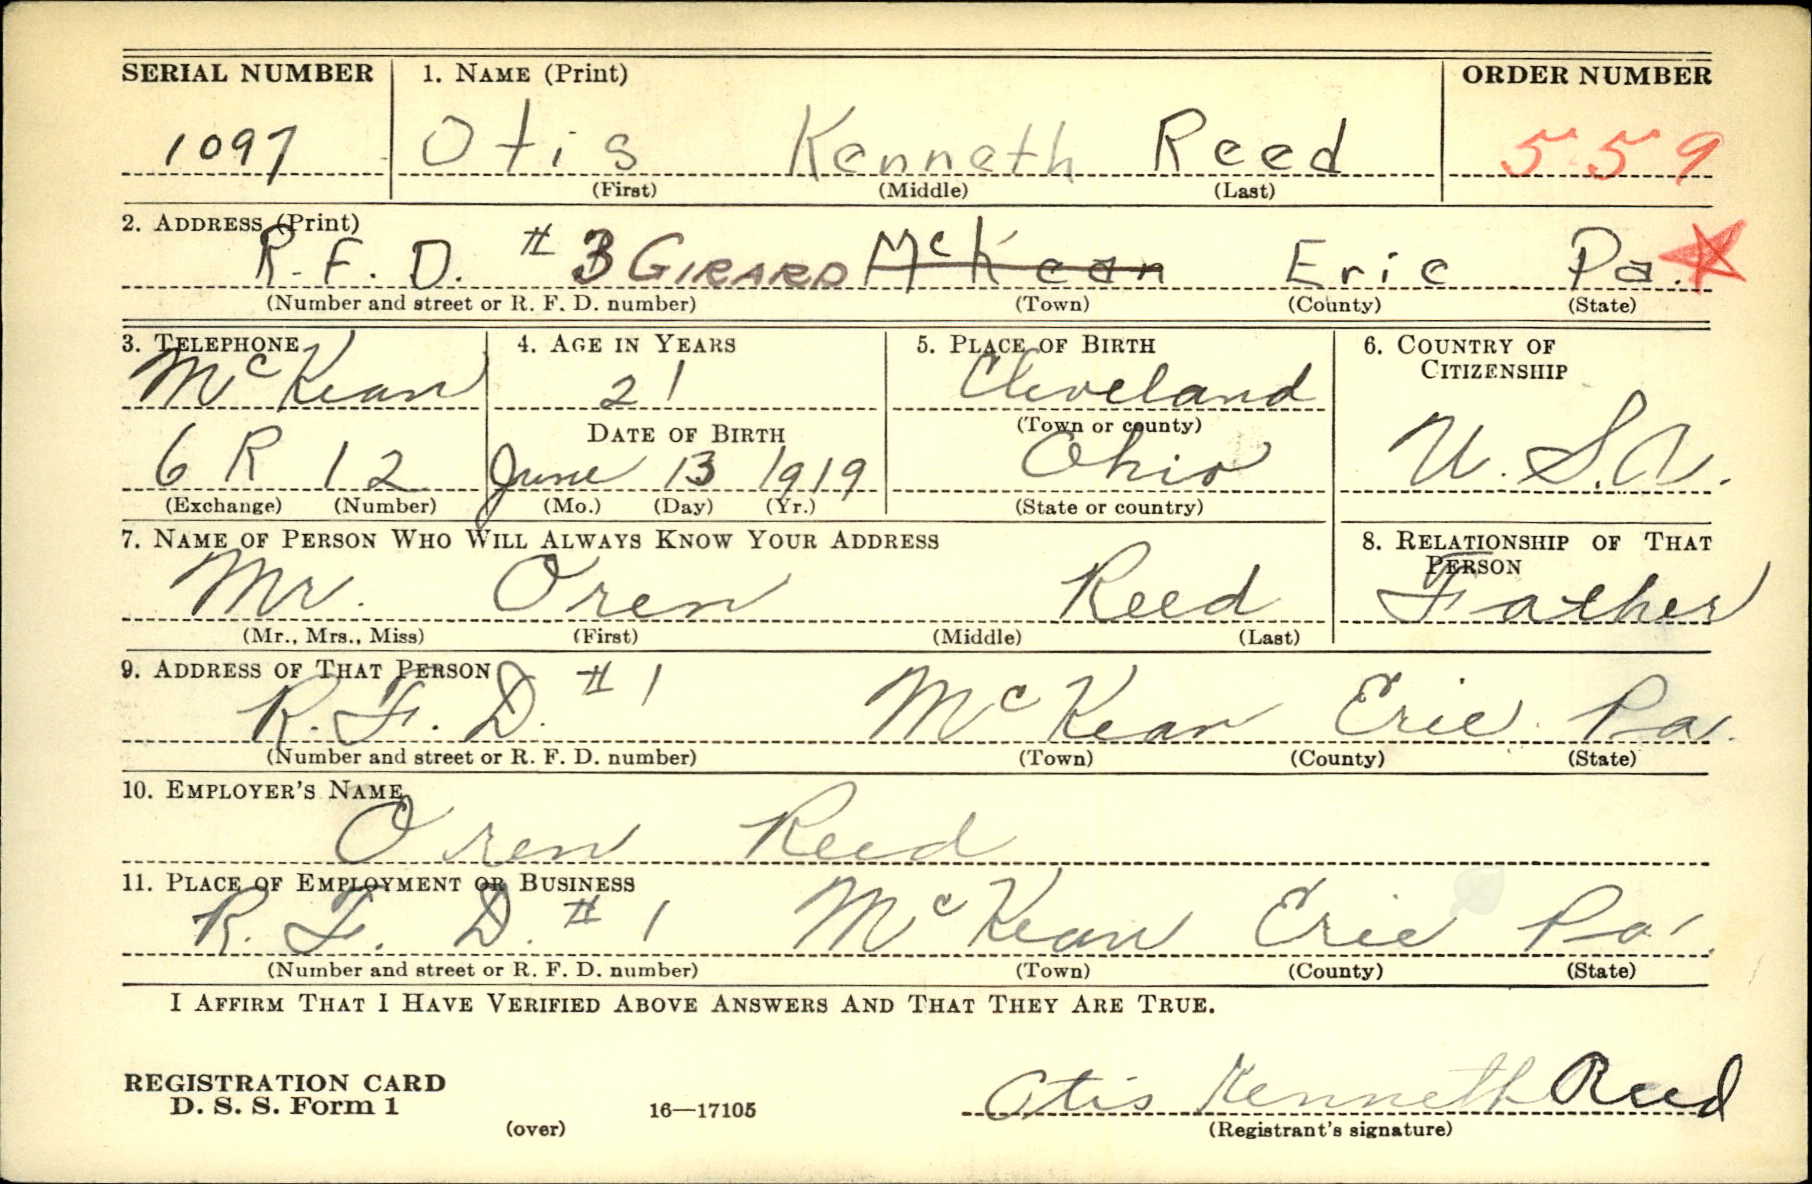 SERIAL NUMBER 1. NAME (Print) ORDER NUMBER
1097 Otis Kenneth Reed 559
(First) (Middle) (Last)
2. ADDRESS (Print)
R.F.D. # 3 GIRARD McKean Erie Pa.
(Number and street or R. F. D. number) (Town) (County) (State)
3. TELEPHONE 4. AGE IN YEARS 5. PLACE OF BIRTH 6. COUNTRY OF
CITIZENSHIP
McKean 21 Cleveland
(Town or county)
DATE OF BIRTH
6 R 12 June 13 1919 Ohio U.S.A.
(Exchange) (Number) (Mo.) (Day) (Yr.) (State or country)
7. NAME OF PERSON WHO WILL ALWAYS KNOW YOUR ADDRESS 8. RELATIONSHIP OF THAT
PERSON
Mr. Oren Reed Father
(Mr., Mrs., Miss) (First) (Middle) (Last)
9. ADDRESS OF THAT PERSON
R.F.D. # 1 McKean Erie Pa.
(Number and street or R. F. D. number) (Town) (County) (State)
10. EMPLOYER'S NAME
Oren Reed
11. PLACE OF EMPLOYMENT OR BUSINESS
R.F.D. # 1 McKean Erie Pa.
(Number and street or R. F. D. number) (Town) (County) (State)
I AFFIRM THAT I HAVE VERIFIED ABOVE ANSWERS AND THAT THEY ARE TRUE.
REGISTRATION CARD
D. S. S. Form 1 Otis Kenneth Reed
(over) 16—17105 (Registrant's signature)